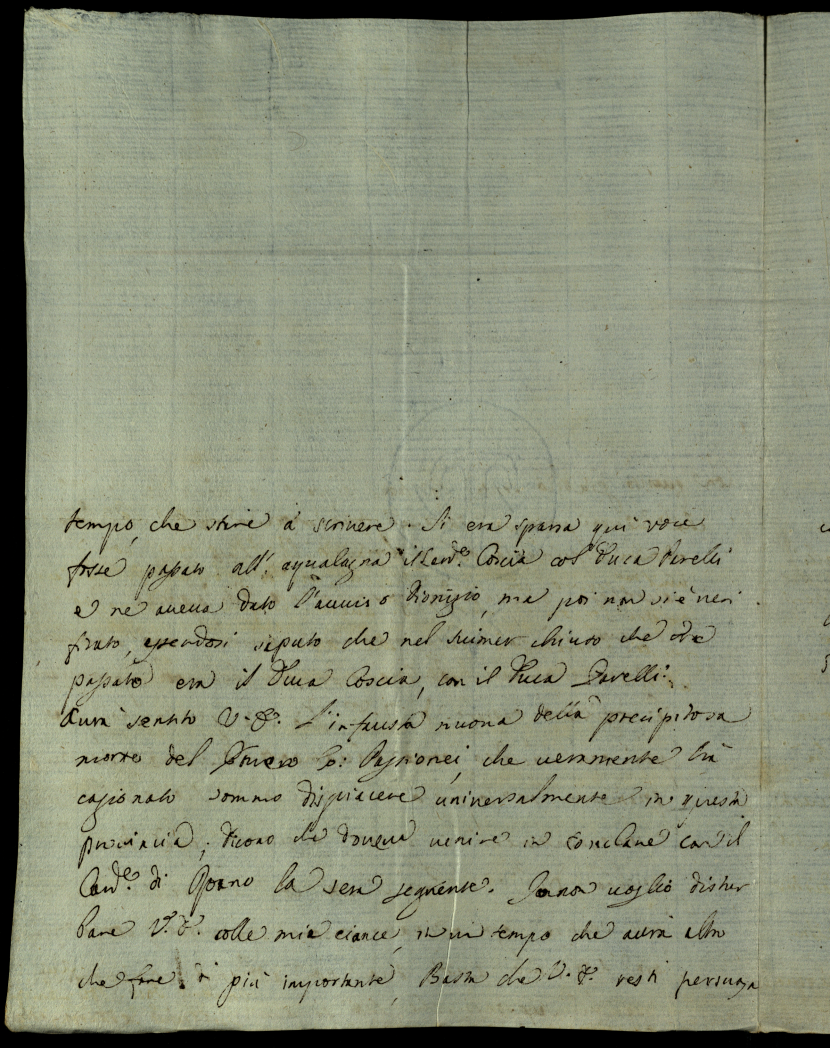 tempo, che stare à scrivere. Si era sparsa qui voce
fosse passato all'aqualagna il Card.e Coscia col Duca
e ne aveva dato l'avviso Dionigio, ma poi non si è veri
ficato, essendosi saputo che nel chiuso che
passato era il Duca Coscia, con il Duca
Avrà sentito V. E. l'infausta nuova della precipitosa
morte del Povero Passionei, che veramente hà
cagionato sommo dispiacere universalmente in questa
provincia; dicono che doveva venire in conclave con il
Card.e di la sera seguente. Io non voglio distur
bare V. E. colle mie ciance, in un tempo che avrà altro
che fare di più importante, Basta che V. E. resti persuasa